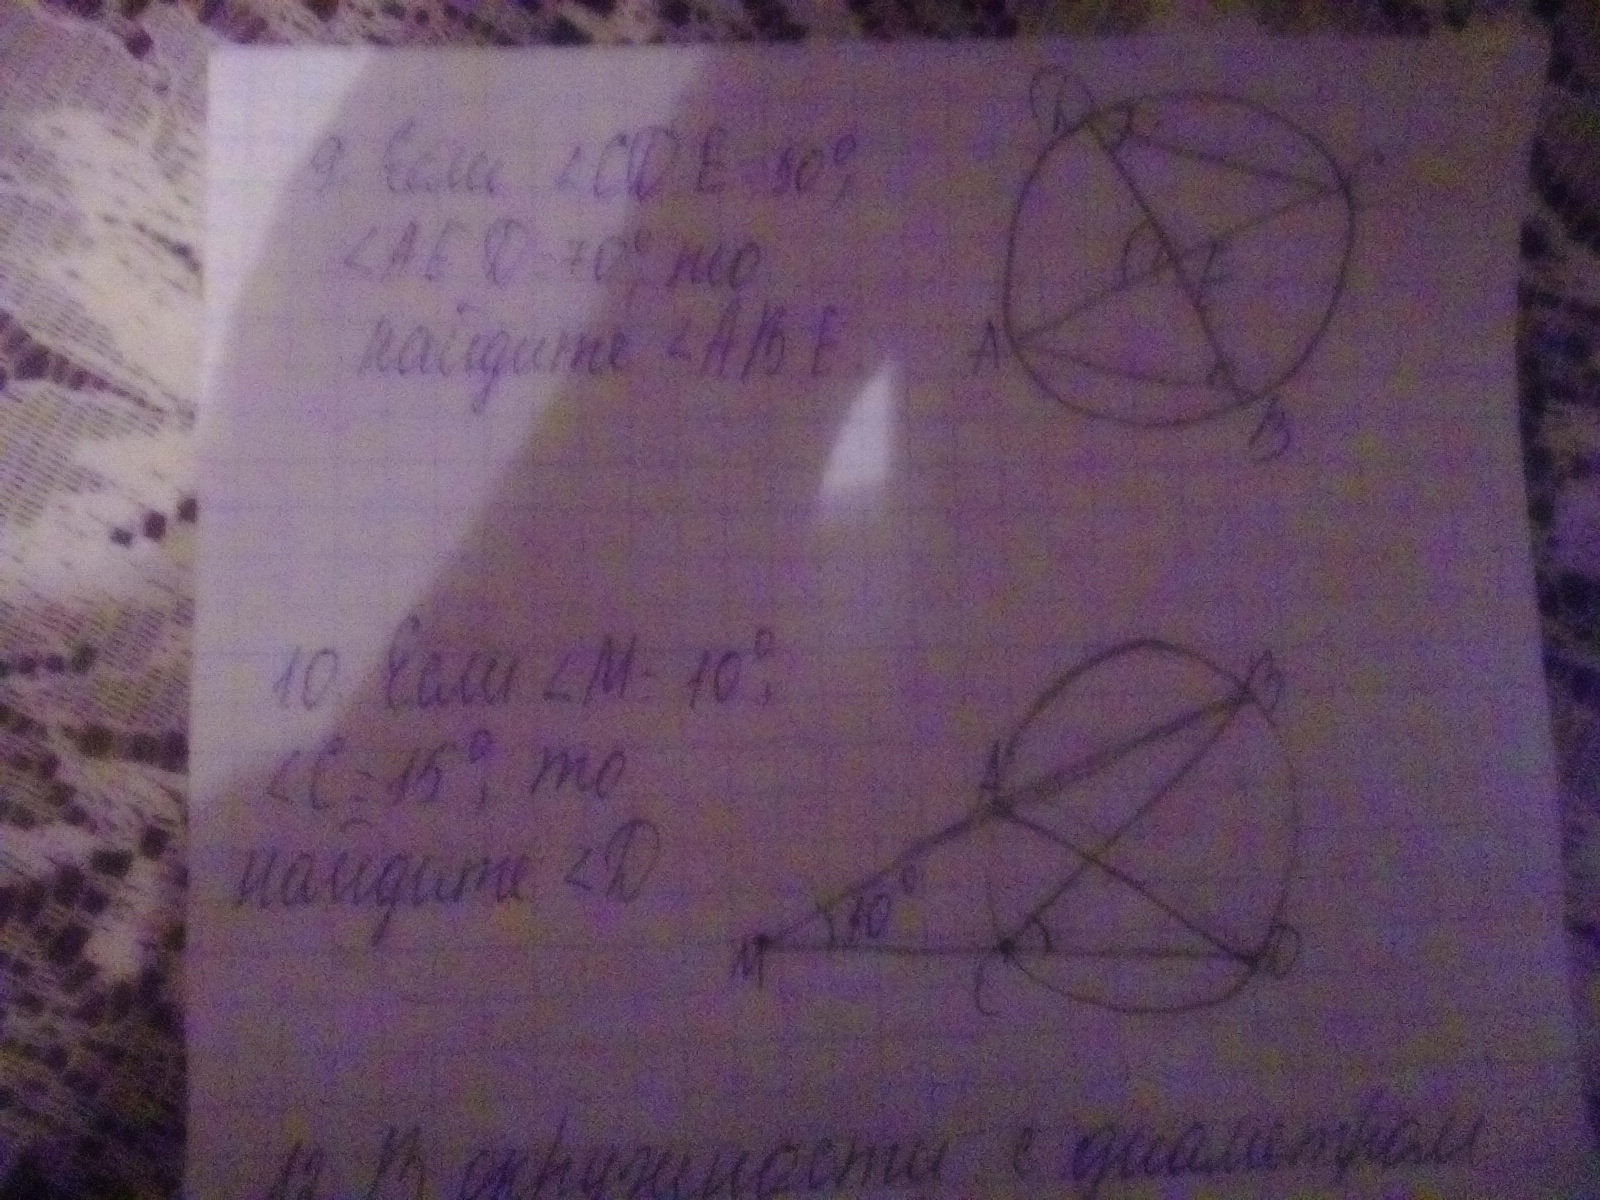 9. Если ∠CDE=30°,
∠AED=70°, то
найдите ∠ABE
D
C
E
A
B
10. Если ∠M=10°,
∠C=15°, то
найдите ∠D
B
A
10°
M
C
D
12. В окружности с диаметром